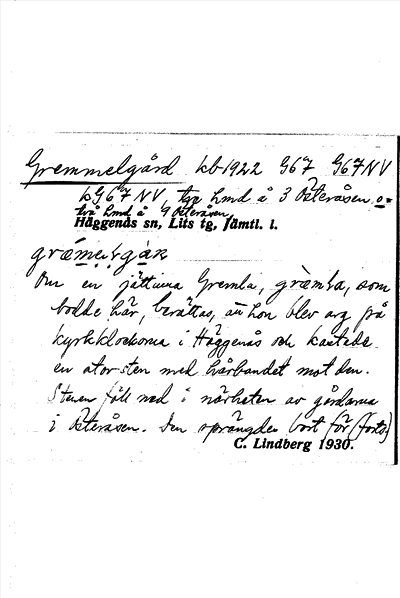 Gremmelgård kb 1922 G67 G67NV
kG67NV, två hmd å 3 Österåsen o=
två hmd å 4 Österåsen,
Häggenås sn, Lits tg, Jämtl. l.
Om en jättinna Gremla, som
bodde här, berättas, att hon blev arg på
kyrkklockorna i Häggenås och kastade
en stor sten med hårbandet mot den.
Stenen föll ned i närheten av gårdarna
i Österåsen. Den sprängdes bort för (forts)
C. Lindberg 1930.